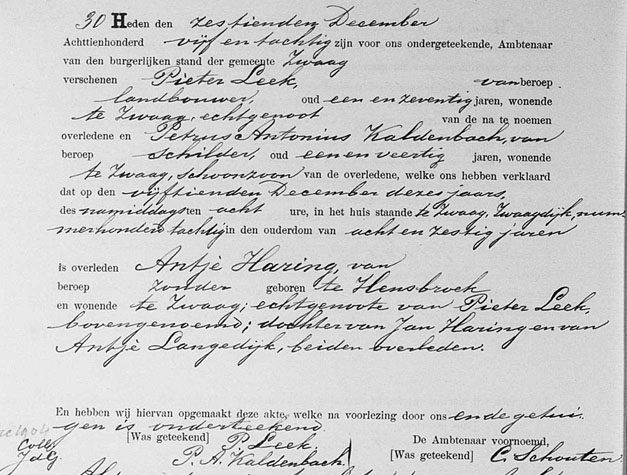 30 Heden den zestienden December
Achttienhonderd vijf en tachtig zijn voor ons ondergeteekende, Ambtenaar
van den burgerlijken stand der gemeente Zwaag
verschenen Pieter Leek, van beroep
landbouwer, oud een en zeventig jaren, wonende
te Zwaag, echtgenoot van de na te noemen
overledene en Petrus Antonius Kaldenbach, van
beroep schilder, oud een en veertig jaren, wonende
te Zwaag, schoonzoon van de overledene, welke ons hebben verklaard
dat op den vijftienden December dezes jaars,
des namiddags ten acht ure, in het huis staande te Zwaag, Zwaagdijk, num-
mer honderd tachtig in den ouderdom van acht en zestig jaren
is overleden Antje Haring, van
beroep zonder geboren te Hensbroek
en wonende te Zwaag; echtgenoote van Pieter Leek,
bovengenoemd; dochter van Jan Haring en van
Antje Langedijk, beiden overleden.
En hebben wij hiervan opgemaakt deze akte, welke na voorlezing door ons en de getui-
gen is onderteekend.
[Was geteekend] P. Leek. De Ambtenaar voornoemd,
Coll.
JdG. P. A. Kaldenbach. [Was geteekend] C. Schouten